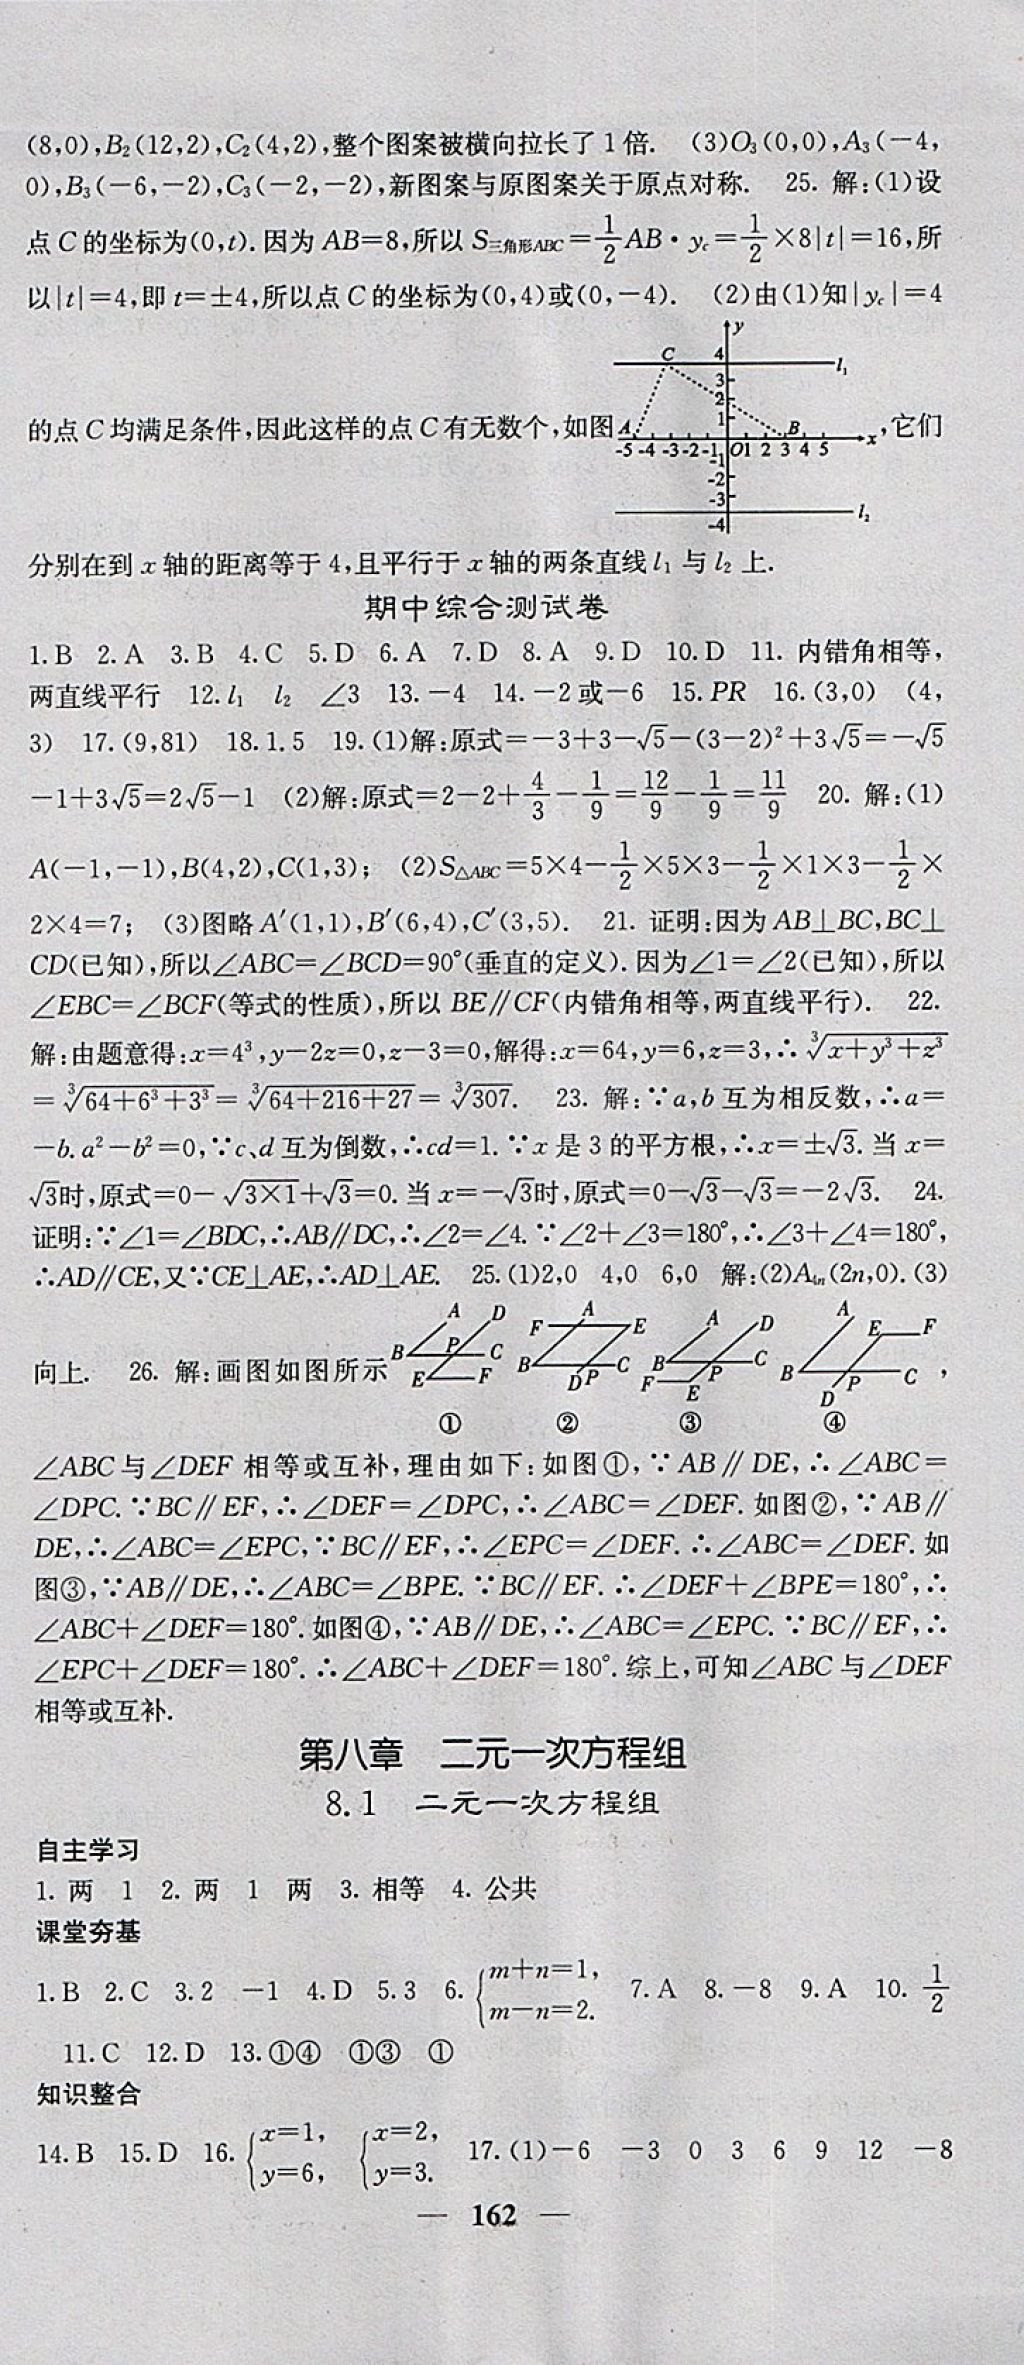 (8,0),B₂(12,2),C₂(4,2),整个图案被横向拉长了1倍. (3)O₃(0,0),A₃(−4,
0),B₃(−6,−2),C₃(−2,−2),新图案与原图案关于原点对称. 25. 解:(1)设
点C的坐标为(0,t).因为AB=8,所以S三角形ABC=1/2AB·y꜀=1/2×8|t|=16,所
以|t|=4,即t=±4,所以点C的坐标为(0,4)或(0,−4). (2)由(1)知|y꜀|=4
y
C 4 l₁
3
2
的点C均满足条件,因此这样的点C有无数个,如图 A 1 B x,它们
-5 -4 -3 -2 -1 O 1 2 3 4 5
-1
-2
-3
-4 l₂
分别在到x轴的距离等于4,且平行于x轴的两条直线l₁与l₂上.
期中综合测试卷
1.B 2.A 3.B 4.C 5.D 6.A 7.D 8.A 9.D 10.D 11. 内错角相等,
两直线平行 12.l₁ l₂ ∠3 13.−4 14.−2或−6 15.PR 16.(3,0) (4,
3) 17.(9,81) 18.1.5 19.(1)解:原式=−3+3−√5−(3−2)²+3√5=−√5
−1+3√5=2√5−1 (2)解:原式=2−2+4/3−1/9=12/9−1/9=11/9 20. 解:(1)
A(−1,−1),B(4,2),C(1,3); (2)S△ABC=5×4−1/2×5×3−1/2×1×3−1/2×
2×4=7; (3)图略A′(1,1),B′(6,4),C′(3,5). 21. 证明:因为AB⊥BC,BC⊥
CD(已知),所以∠ABC=∠BCD=90°(垂直的定义).因为∠1=∠2(已知),所以
∠EBC=∠BCF(等式的性质),所以BE∥CF(内错角相等,两直线平行). 22.
解:由题意得:x=4³,y−2z=0,z−3=0,解得:x=64,y=6,z=3,∴∛(x+y³+z³)
=∛(64+6³+3³)=∛(64+216+27)=∛307. 23. 解:∵a,b互为相反数,∴a=
−b.a²−b²=0,∵c、d互为倒数,∴cd=1.∵x是3的平方根,∴x=±√3.当x=
√3时,原式=0−√(3×1)+√3=0.当x=−√3时,原式=0−√3−√3=−2√3. 24.
证明:∵∠1=∠BDC,∴AB∥DC,∴∠2=∠4.∵∠2+∠3=180°,∴∠3+∠4=180°,
∴AD∥CE,又∵CE⊥AE,∴AD⊥AE. 25.(1)2,0 4,0 6,0 解:(2)A₄ₙ(2n,0).(3)
A D F A E A D A E F
向上. 26. 解:画图如图所示 B P C B C B P C B P C ,
E F D P F E D
① ② ③ ④
∠ABC与∠DEF相等或互补,理由如下:如图①,∵AB∥DE,∴∠ABC=
∠DPC.∵BC∥EF,∴∠DEF=∠DPC,∴∠ABC=∠DEF.如图②,∵AB∥
DE,∴∠ABC=∠EPC,∵BC∥EF,∴∠EPC=∠DEF.∴∠ABC=∠DEF.如
图③,∵AB∥DE,∴∠ABC=∠BPE.∵BC∥EF.∴∠DEF+∠BPE=180°,∴
∠ABC+∠DEF=180°.如图④,∵AB∥DE,∴∠ABC=∠EPC.∵BC∥EF,∴
∠EPC+∠DEF=180°.∴∠ABC+∠DEF=180°.综上,可知∠ABC与∠DEF
相等或互补.
第八章 二元一次方程组
8.1 二元一次方程组
自主学习
1. 两 1 2. 两 1 两 3. 相等 4. 公共
课堂夯基
1.B 2.C 3.2 −1 4.D 5.3 6.{m+n=1, m−n=2. 7.A 8.−8 9.A 10. 1/2
11.C 12.D 13.①④ ①③ ①
知识整合
14.B 15.D 16.{x=1, y=6, {x=2, y=3. 17.(1)−6 −3 0 3 6 9 12 −8
— 162 —